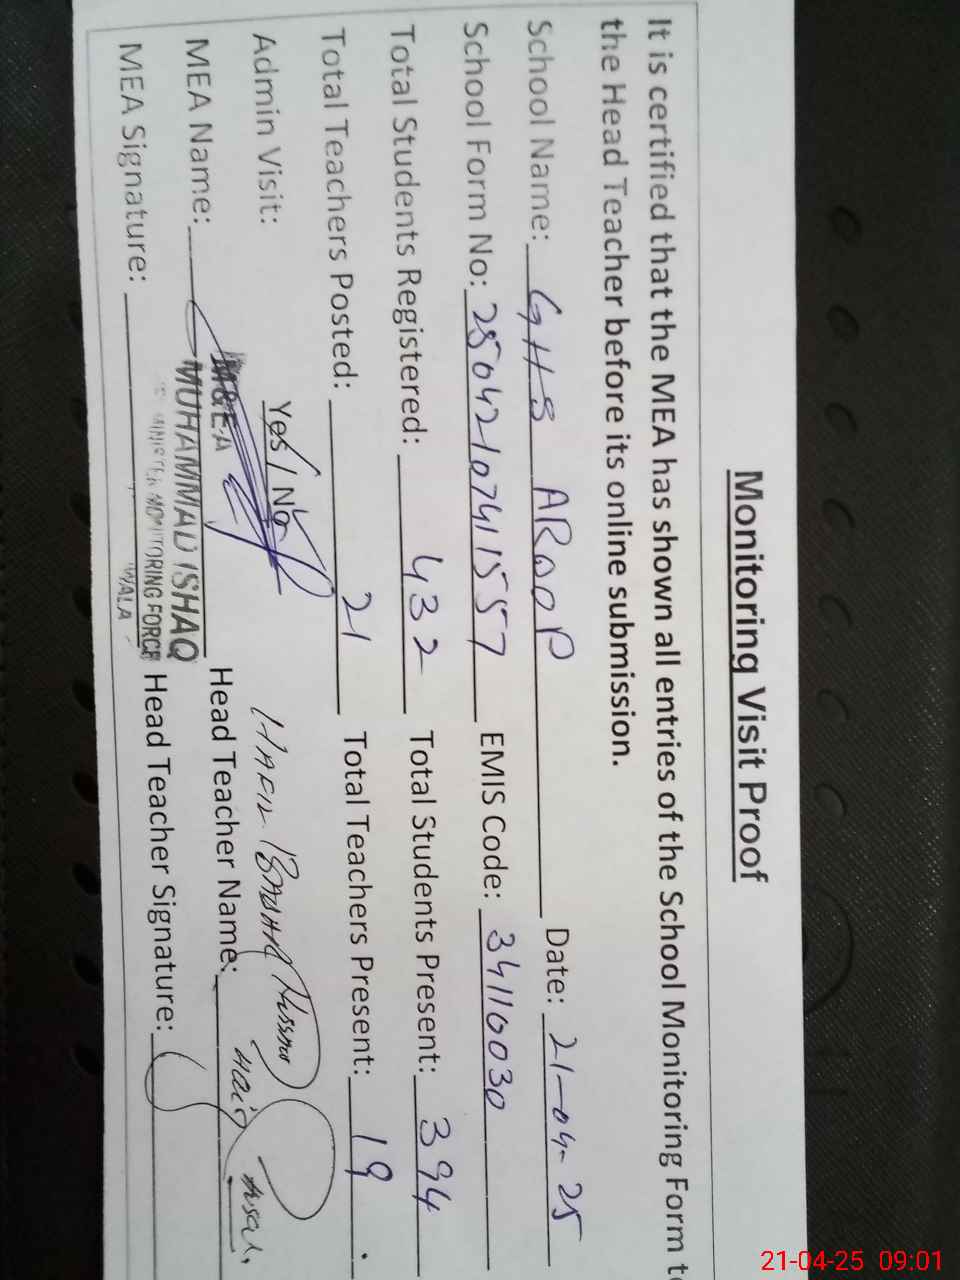 Monitoring Visit Proof
It is certified that the MEA has shown all entries of the School Monitoring Form to
the Head Teacher before its online submission.
School Name: GHS AROOP Date: 21-04-25
School Form No: 25042107411557 EMIS Code: 34110030
Total Students Registered: 432 Total Students Present: 394
Total Teachers Posted: 21 Total Teachers Present: 19
Admin Visit: Yes / No
M&EA
MEA Name: MUHAMMAD ISHAQ Head Teacher Name:
MINISTER MONITORING FORCE
MEA Signature: WALA Head Teacher Signature:
21-04-25 09:01